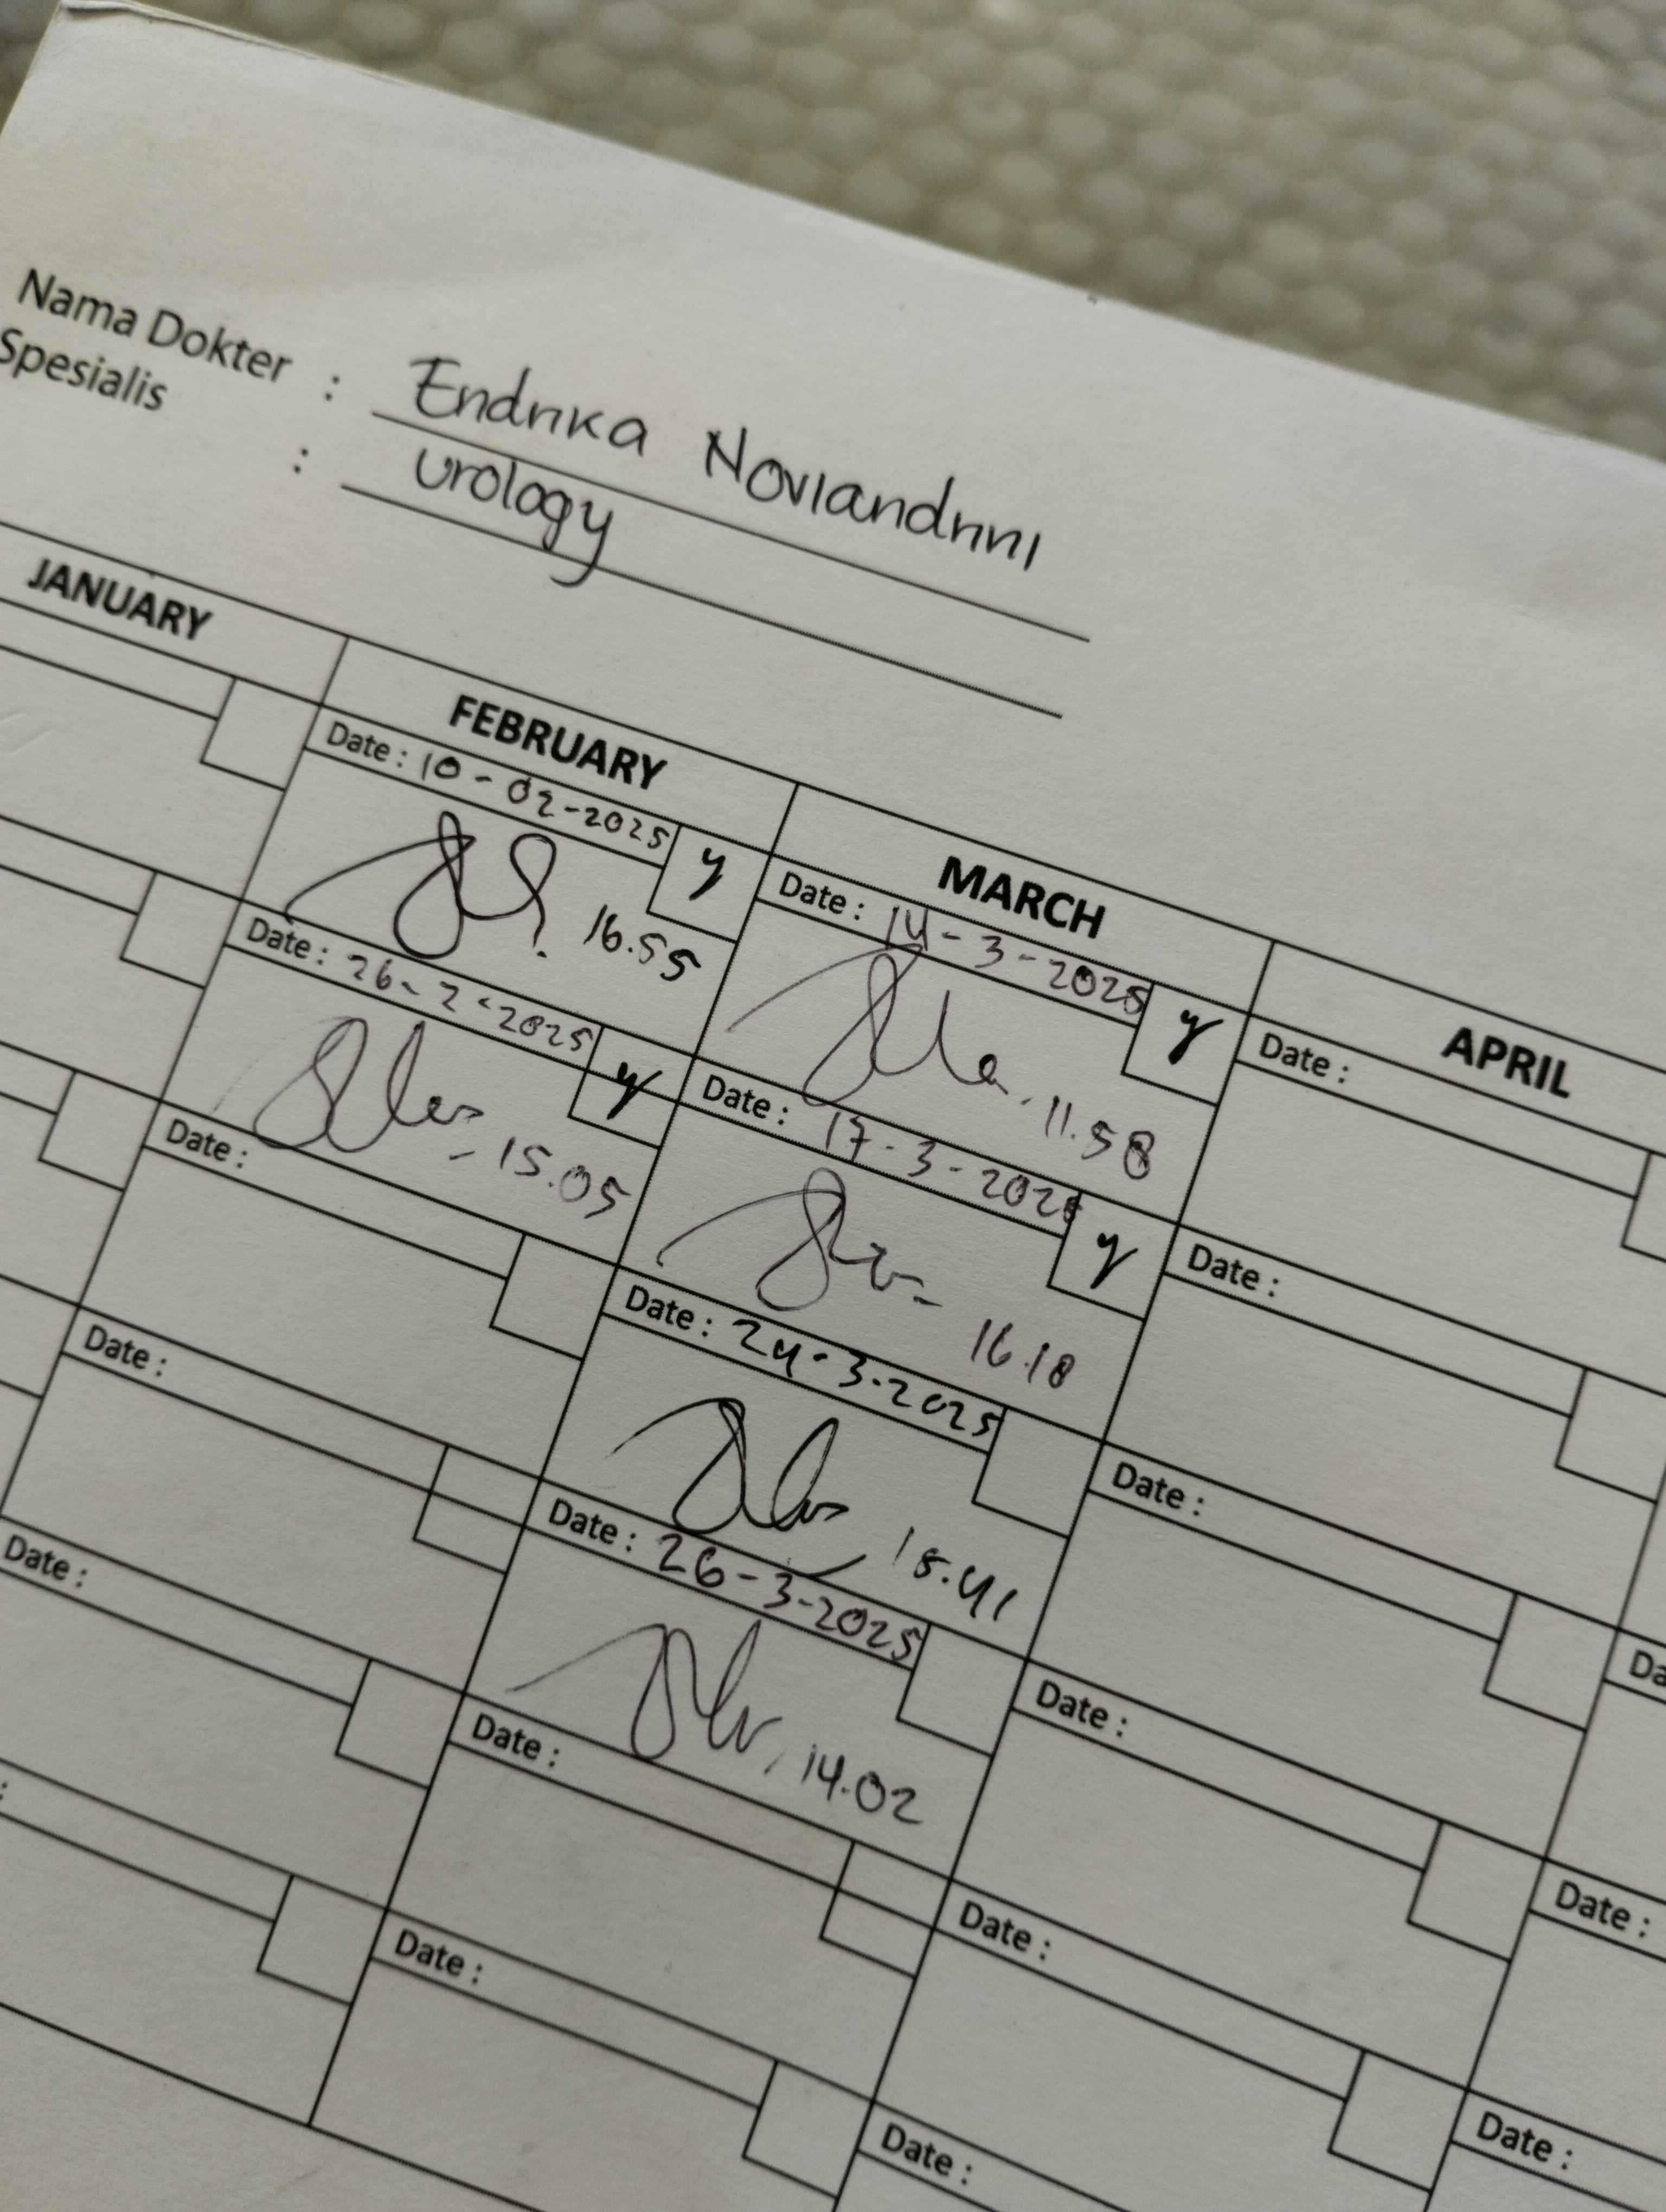 Nama Dokter : Endrika Noviandrini
Spesialis : Urology
JANUARY
FEBRUARY
MARCH
APRIL
Date : 10-02-2025 y
16.55
Date : 26-2-2025 y
15.05
Date :
Date :
Date :
Date : 14-3-2025 y
11.58
Date : 17-3-2025 y
16.18
Date : 24-3-2025
15.41
Date : 26-3-2025
14.02
Date :
Date :
Date :
Date :
Date :
Date :
Date :
Date :
Date :
Date :